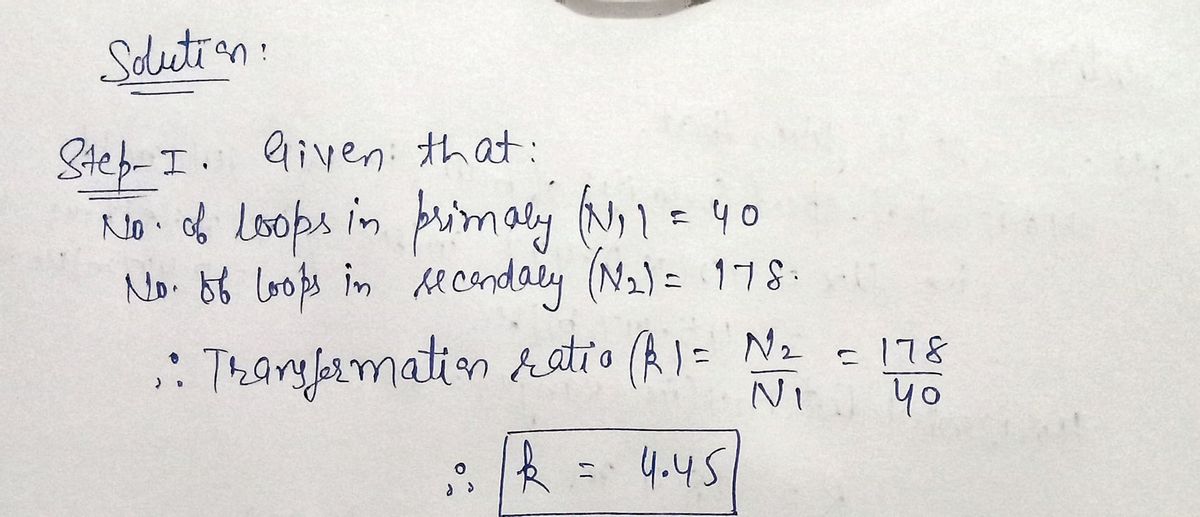 Solution:
Step-I. Given that:
No. of loops in primary (N1) = 40
No. of loops in secondary (N2) = 178.
∴ Transformation ratio (k) = N2/N1 = 178/40
∴ k = 4.45